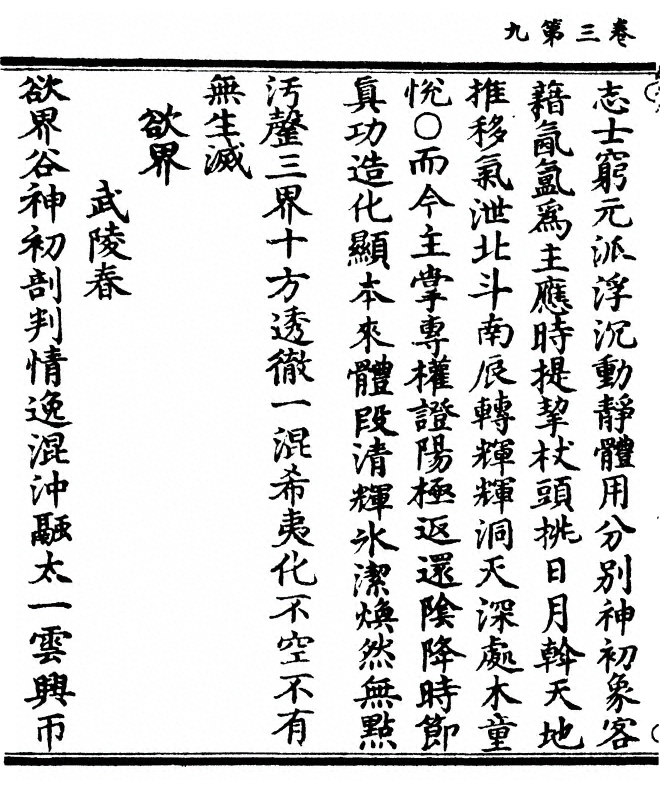 卷三第九
志士窮元派浮沉動靜體用分別神初象客
藉氤氳爲主應時提挈杖頭挑日月斡天地
推移氣泄北斗南辰轉輝輝洞天深處木童
悅○而今主掌專權證陽極返還陰降時節
眞功造化顯本來體段清輝氷潔煥然無點
污聲三界十方透徹一混希夷化不空不有
無生滅
欲界
武陵春
欲界谷神初剖判情逸混沖融太一雲興帀